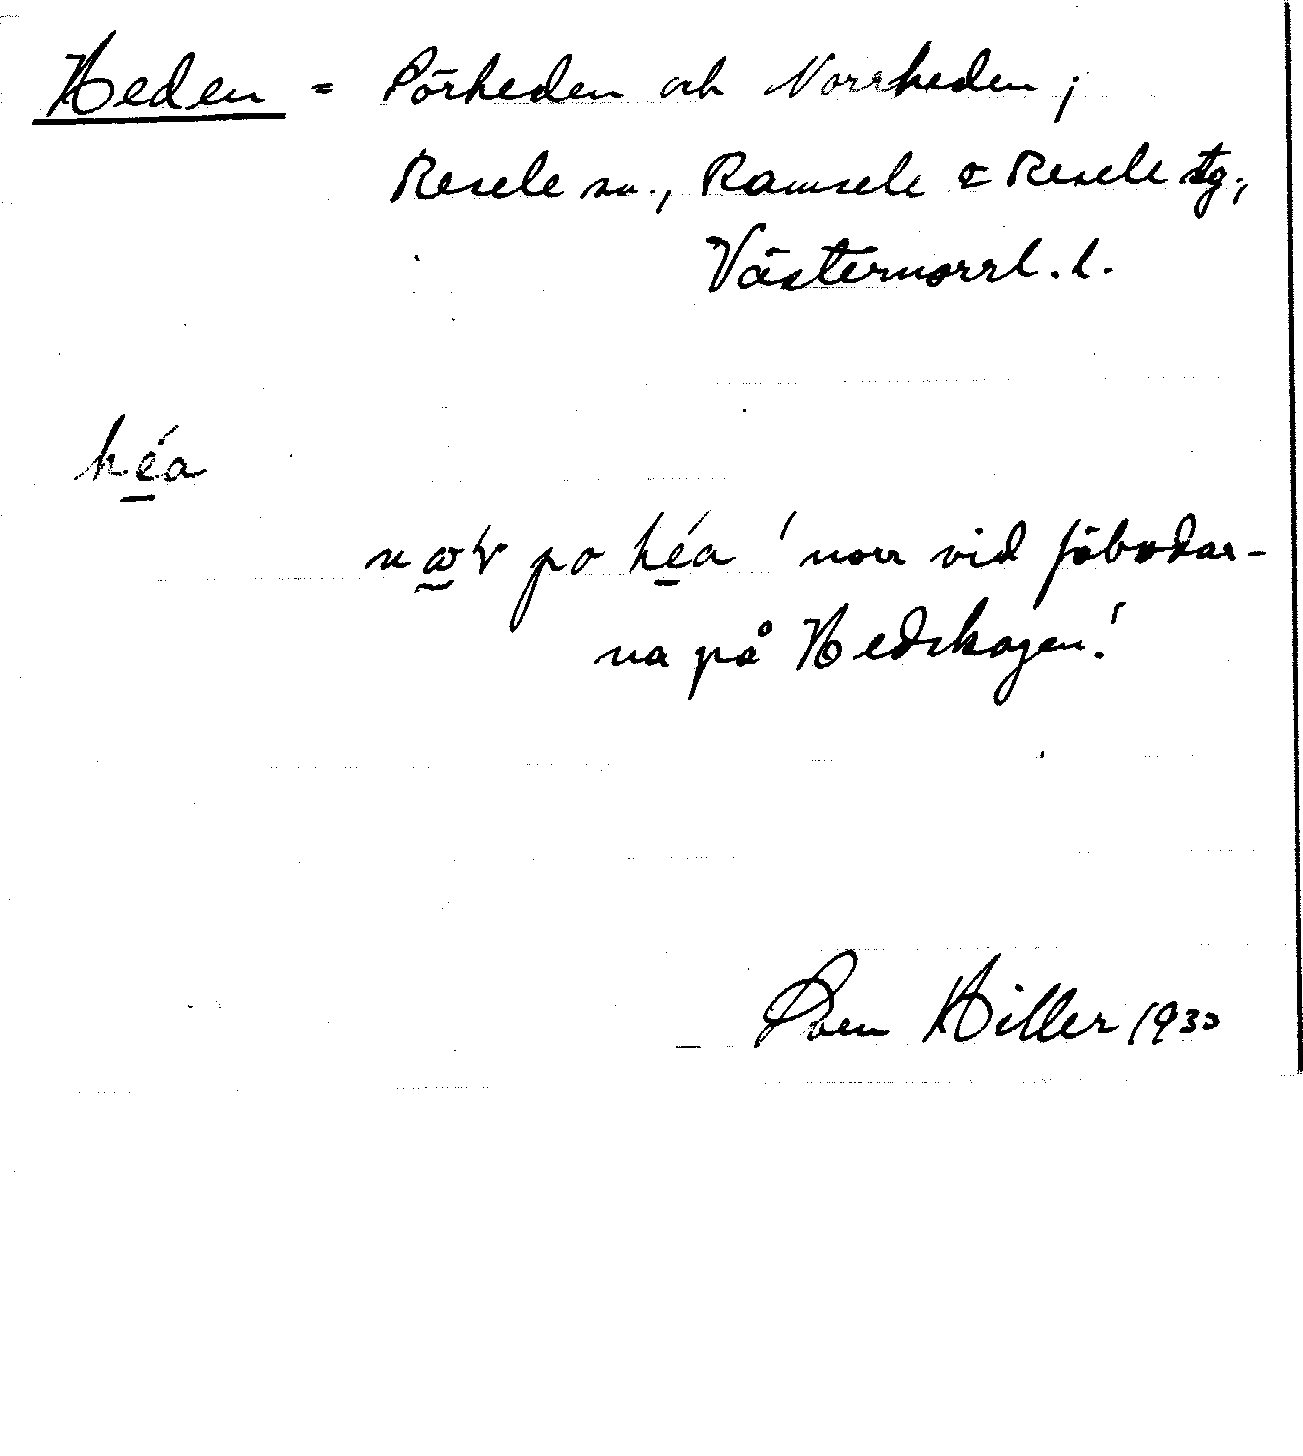 Heden = Pörheden och Norrheden;
Resele sn., Ramsele & Resele tg.,
Västernorrl. l.
héa
po héa 'norr vid fäbodar-
na på Hedskogen.'
Sven Hiller 1930